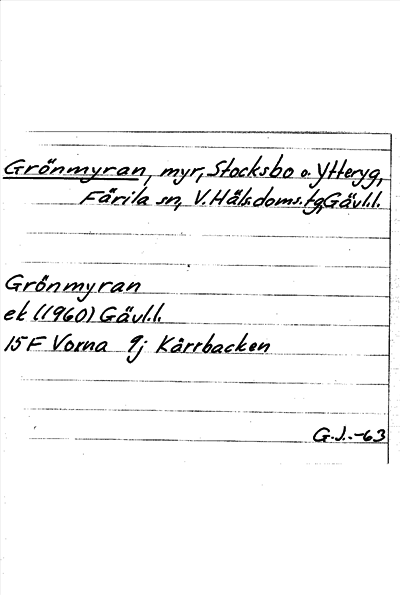 Grönmyran, myr, Stocksbo o. Ytteryg,
Färila sn, V. Häls.doms.tg, Gävl.l.
Grönmyran
ek (1960) Gävl.l.
15F Vorna 9j Kårrbacken
G.J.-63